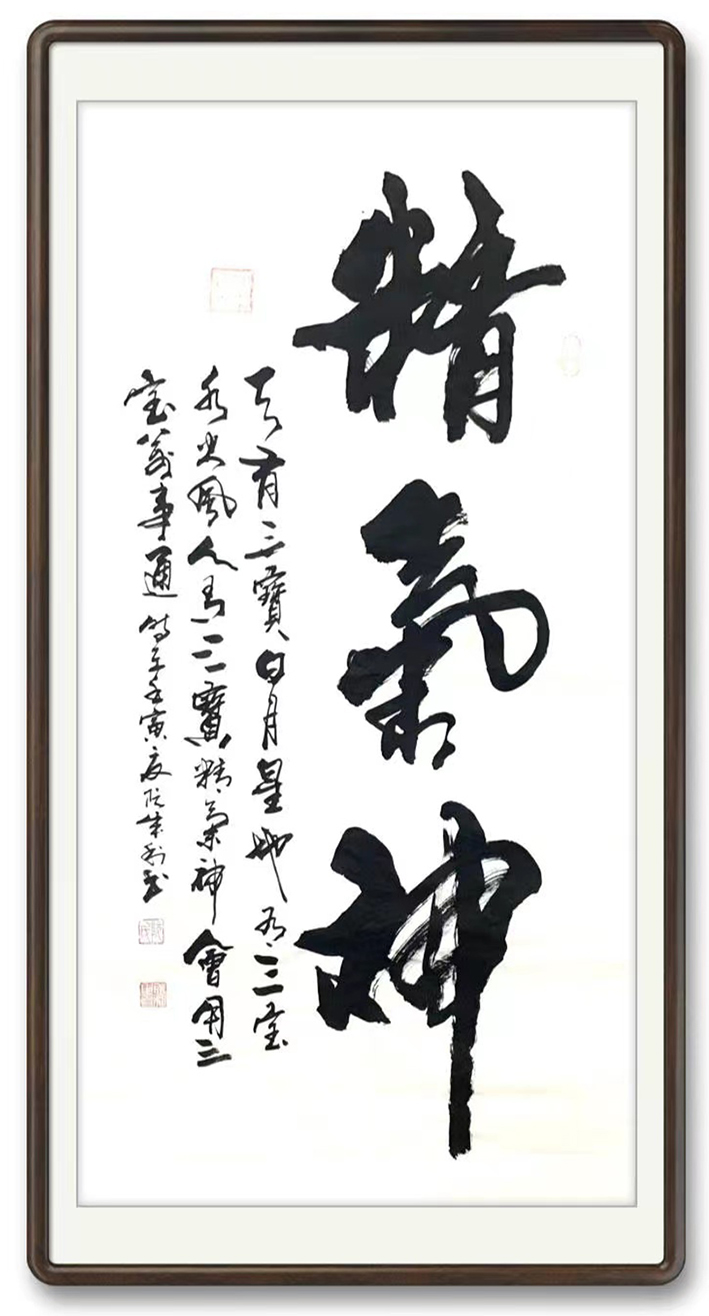 精氣神
天有三寶日月星地有三宝
水火風人有三寶精氣神會用三
宝萬事通 時在壬寅夏 成利书